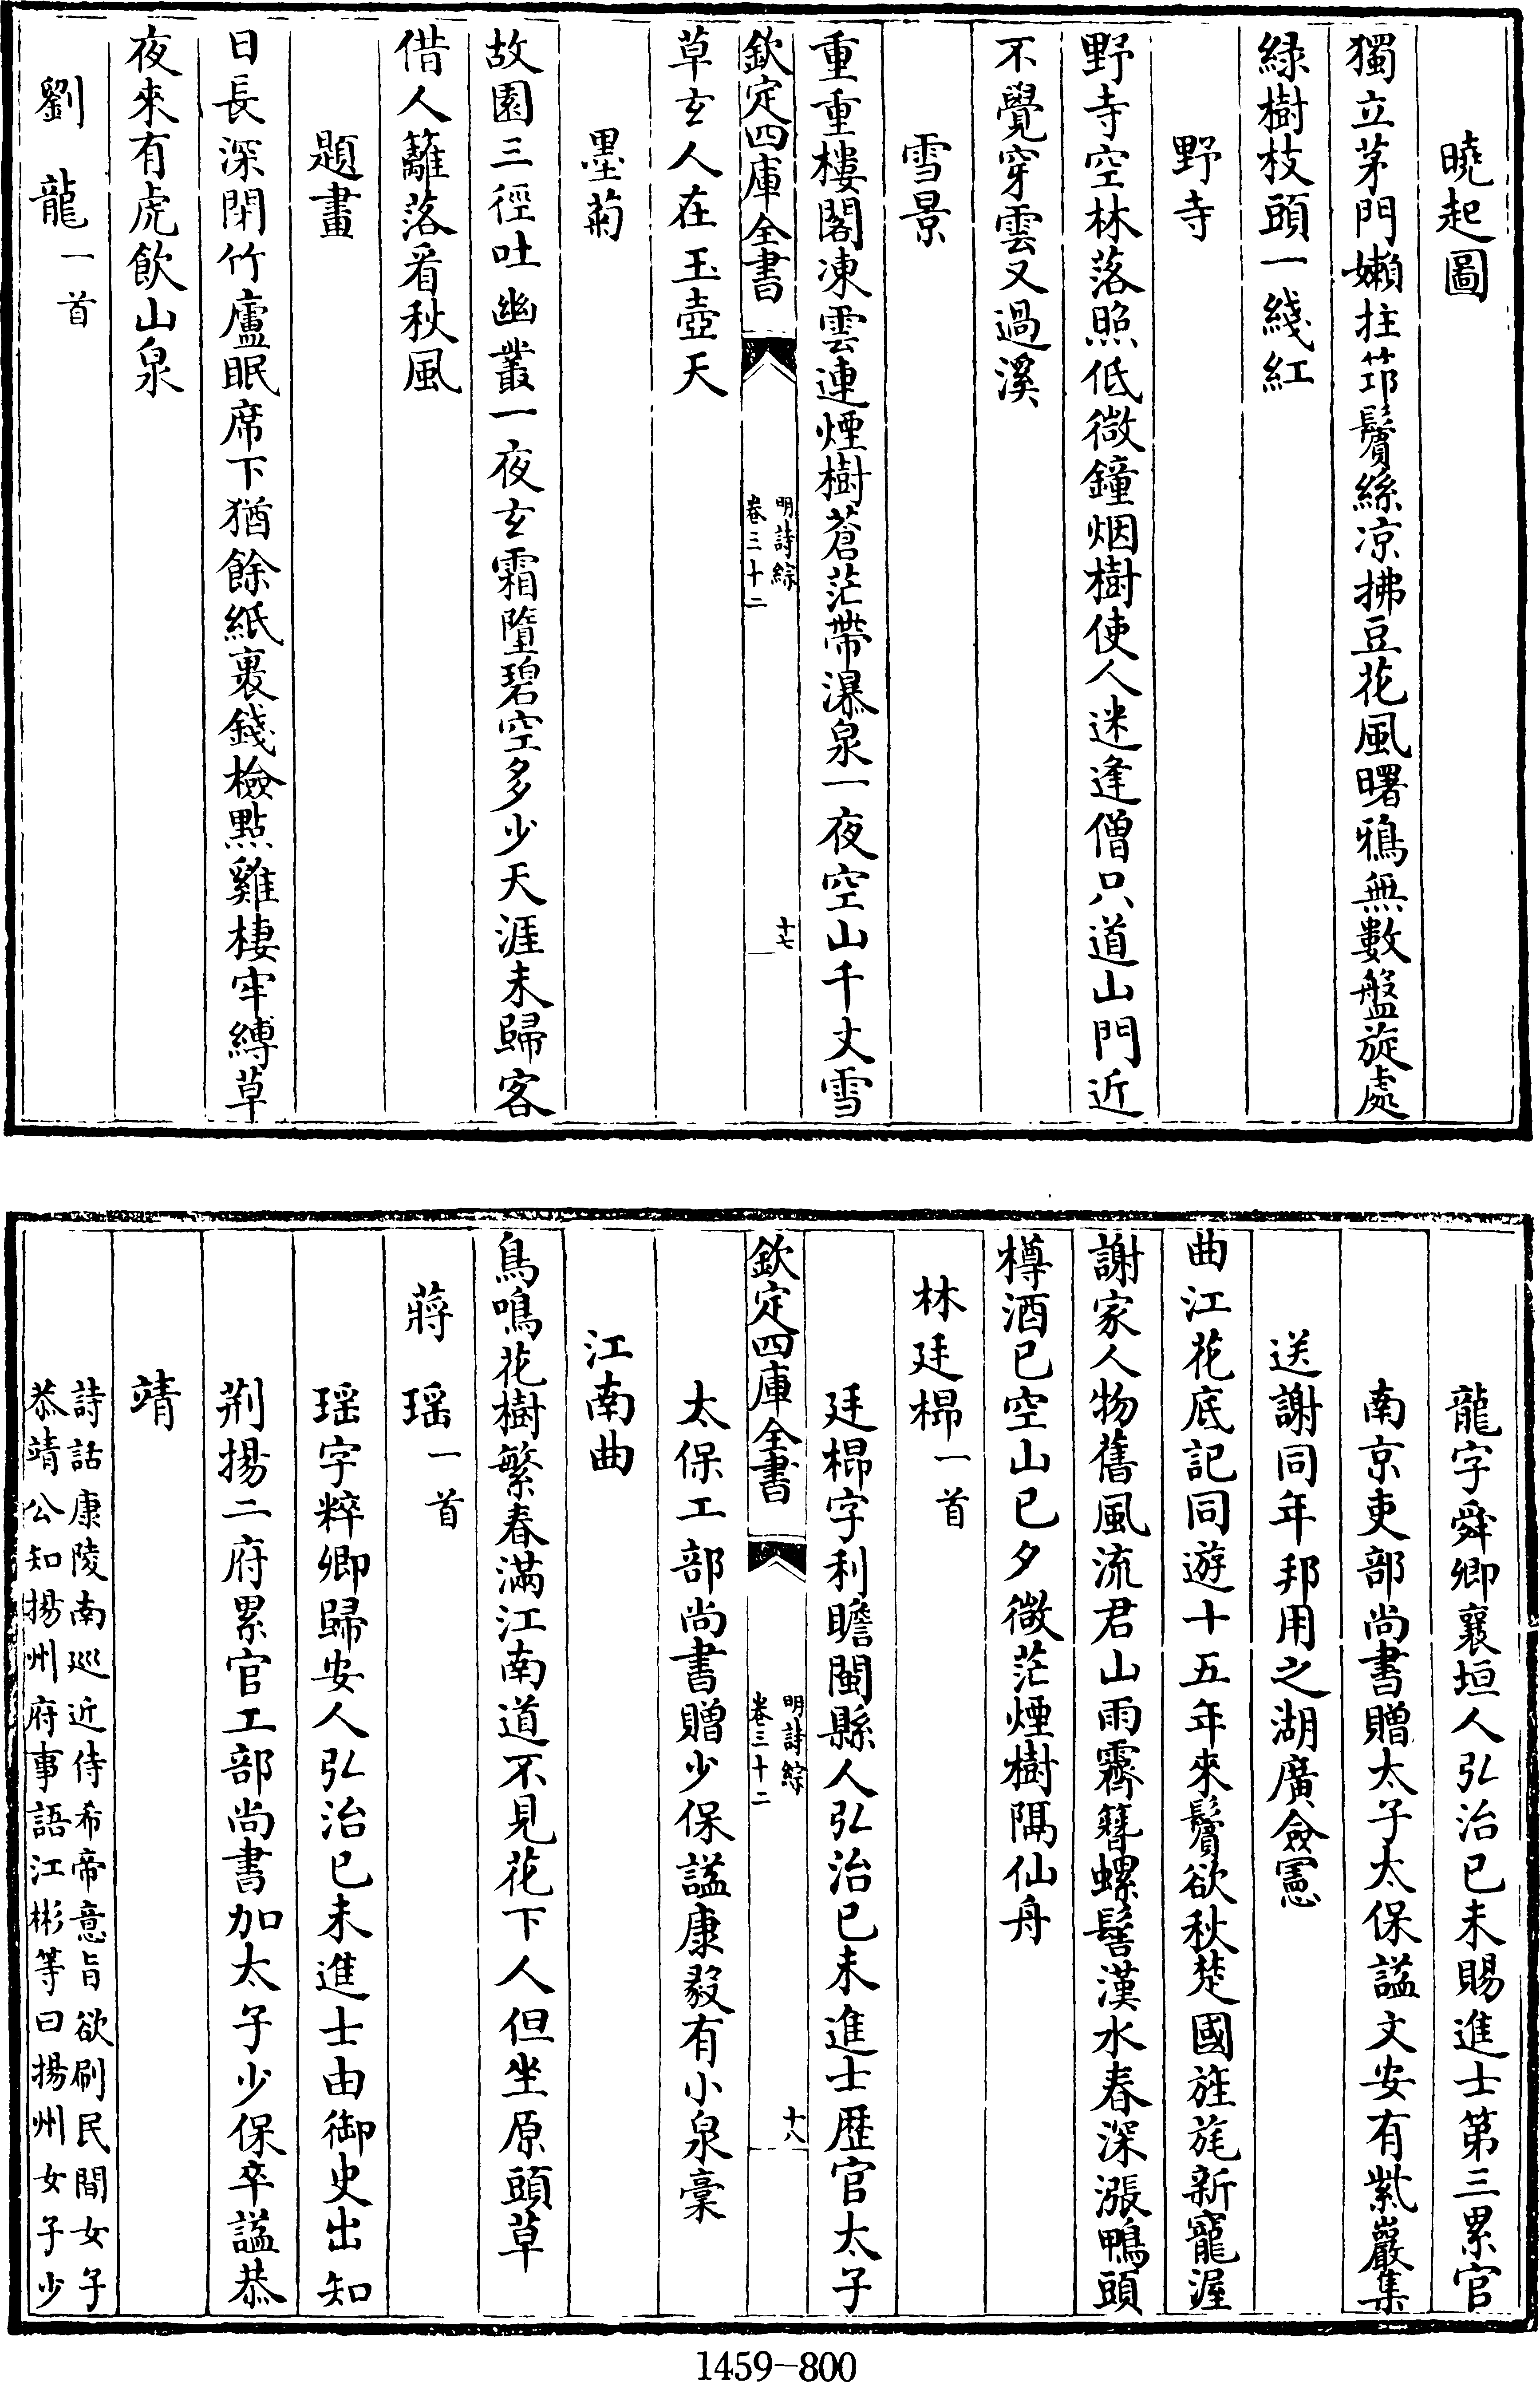 曉起圖
獨立茅門嬾拄笻鬢絲凉拂豆花風曙鴉無數盤旋處
綠樹枝頭一綫紅
野寺
野寺空林落照低微鐘烟樹使人迷逢僧只道山門近
不覺穿雲又過溪
雪景
重重樓閣凍雲連煙樹蒼茫帶瀑泉一夜空山千丈雪
欽定四庫全書
明詩綜
卷三十二
十七
草玄人在玉壺天
墨菊
故園三徑吐幽叢一夜玄霜墮碧空多少天涯未歸客
借人籬落看秋風
題畫
日長深閉竹廬眠席下猶餘紙裹錢檢點雞棲牢縛草
夜來有虎飲山泉
劉龍一首
龍字舜卿襄垣人弘治己未賜進士第三累官
南京吏部尚書贈太子太保諡文安有紫巖集
送謝同年邦用之湖廣僉憲
曲江花底記同遊十五年來鬢欲秋楚國旌旄新寵渥
謝家人物舊風流君山雨霽簪螺髻漢水春深漲鴨頭
樽酒已空山已夕微茫煙樹隔仙舟
林廷㭿一首
廷㭿字利瞻閩縣人弘治己未進士歷官太子
欽定四庫全書
明詩綜
卷三十二
十八
太保工部尚書贈少保諡康毅有小泉稾
江南曲
鳥鳴花樹繁春滿江南道不見花下人但坐原頭草
蔣瑶一首
瑶字粹卿歸安人弘治己未進士由御史出知
荆揚二府累官工部尚書加太子少保卒諡恭
靖
詩話康陵南巡近侍希帝意旨欲刷民間女子
恭靖公知揚州府事語江彬等曰揚州女子少
1459-800